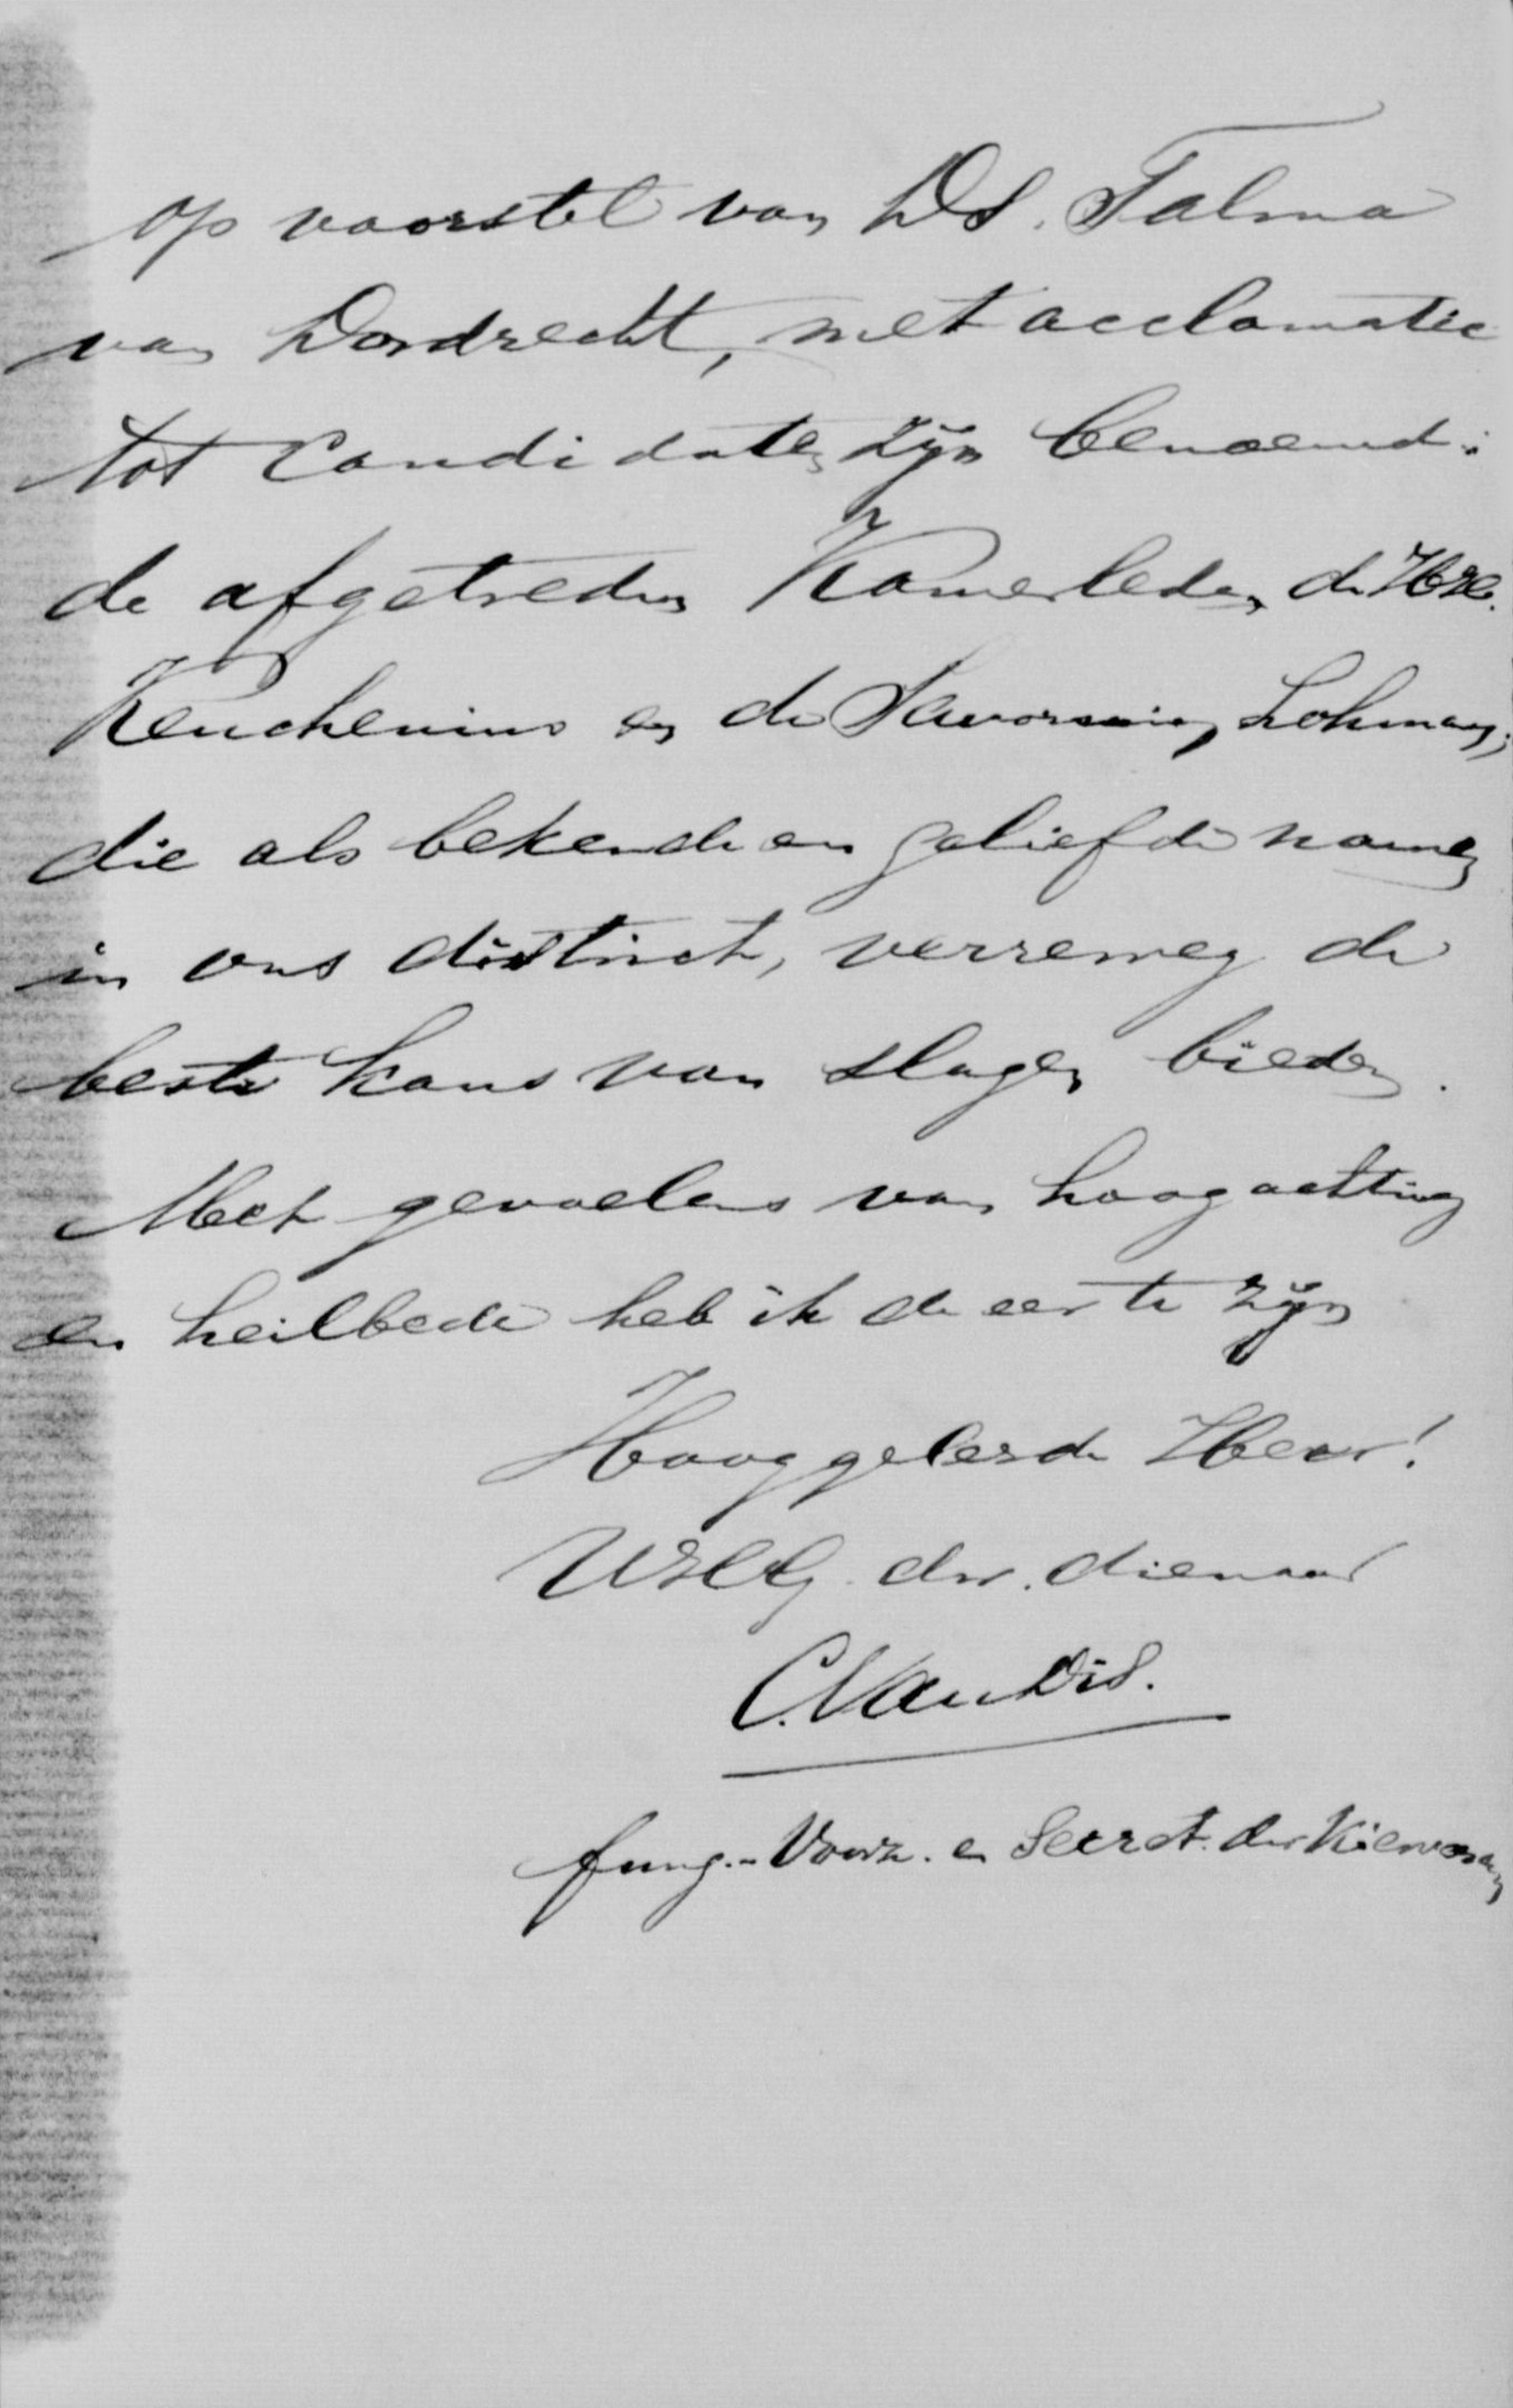 op voorstel van Ds. Talma
van Dordrecht, met acclamatie
tot Candidaten zijn benoemd:
de afgetreden Kamerleden, de HH.
Keuchenius en de Savornin Lohman,
die als bekende en geliefde namen
in ons district, verreweg de
beste kans van slagen bieden.
Met gevoelens van hoogachting
en heilbede heb ik de eer te zijn
Hooggeleerde Heer!
UHG. dw. dienaar
C. Van Dis.
fung.-Voorz. en Secret. der Kiesver